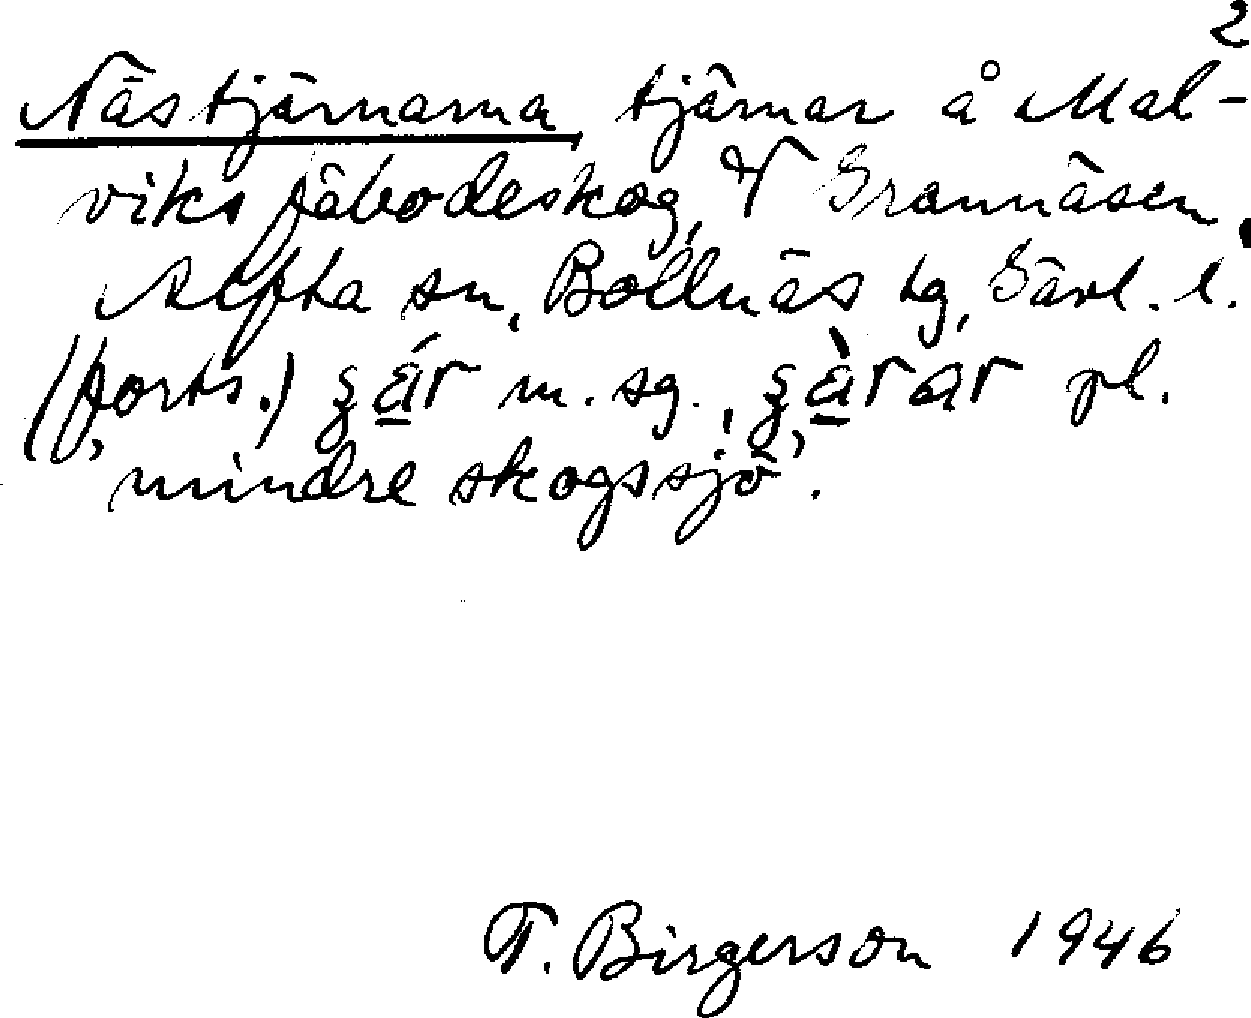 2
Nästjärnarna tjärnar å Mal-
viks fäbodeskog, V Grannäsen,
Alfta sn, Bollnäs tg, Gävl. l.
(forts.) m. sg., pl.
'mindre skogssjö'.
T. Birgerson 1946